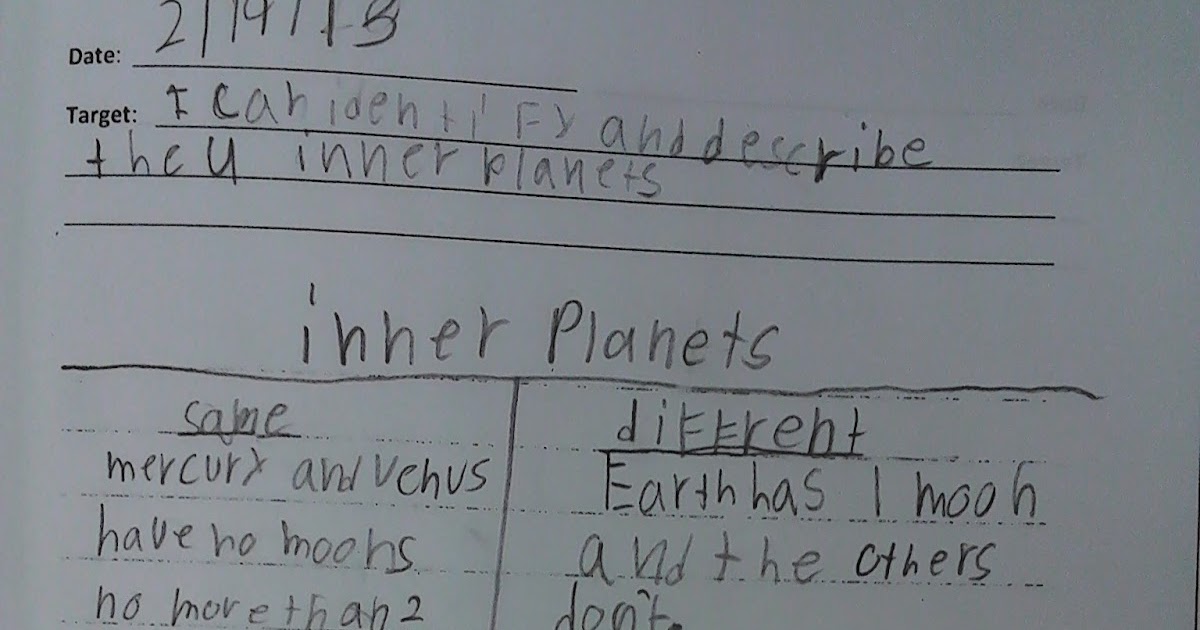 Date: 2/19/15
Target: I can identify and describe
the 4 inner planets
inner Planets
same
different
mercury and venus
have no moons
no more than 2
Earth has 1 moon
and the others
don't.